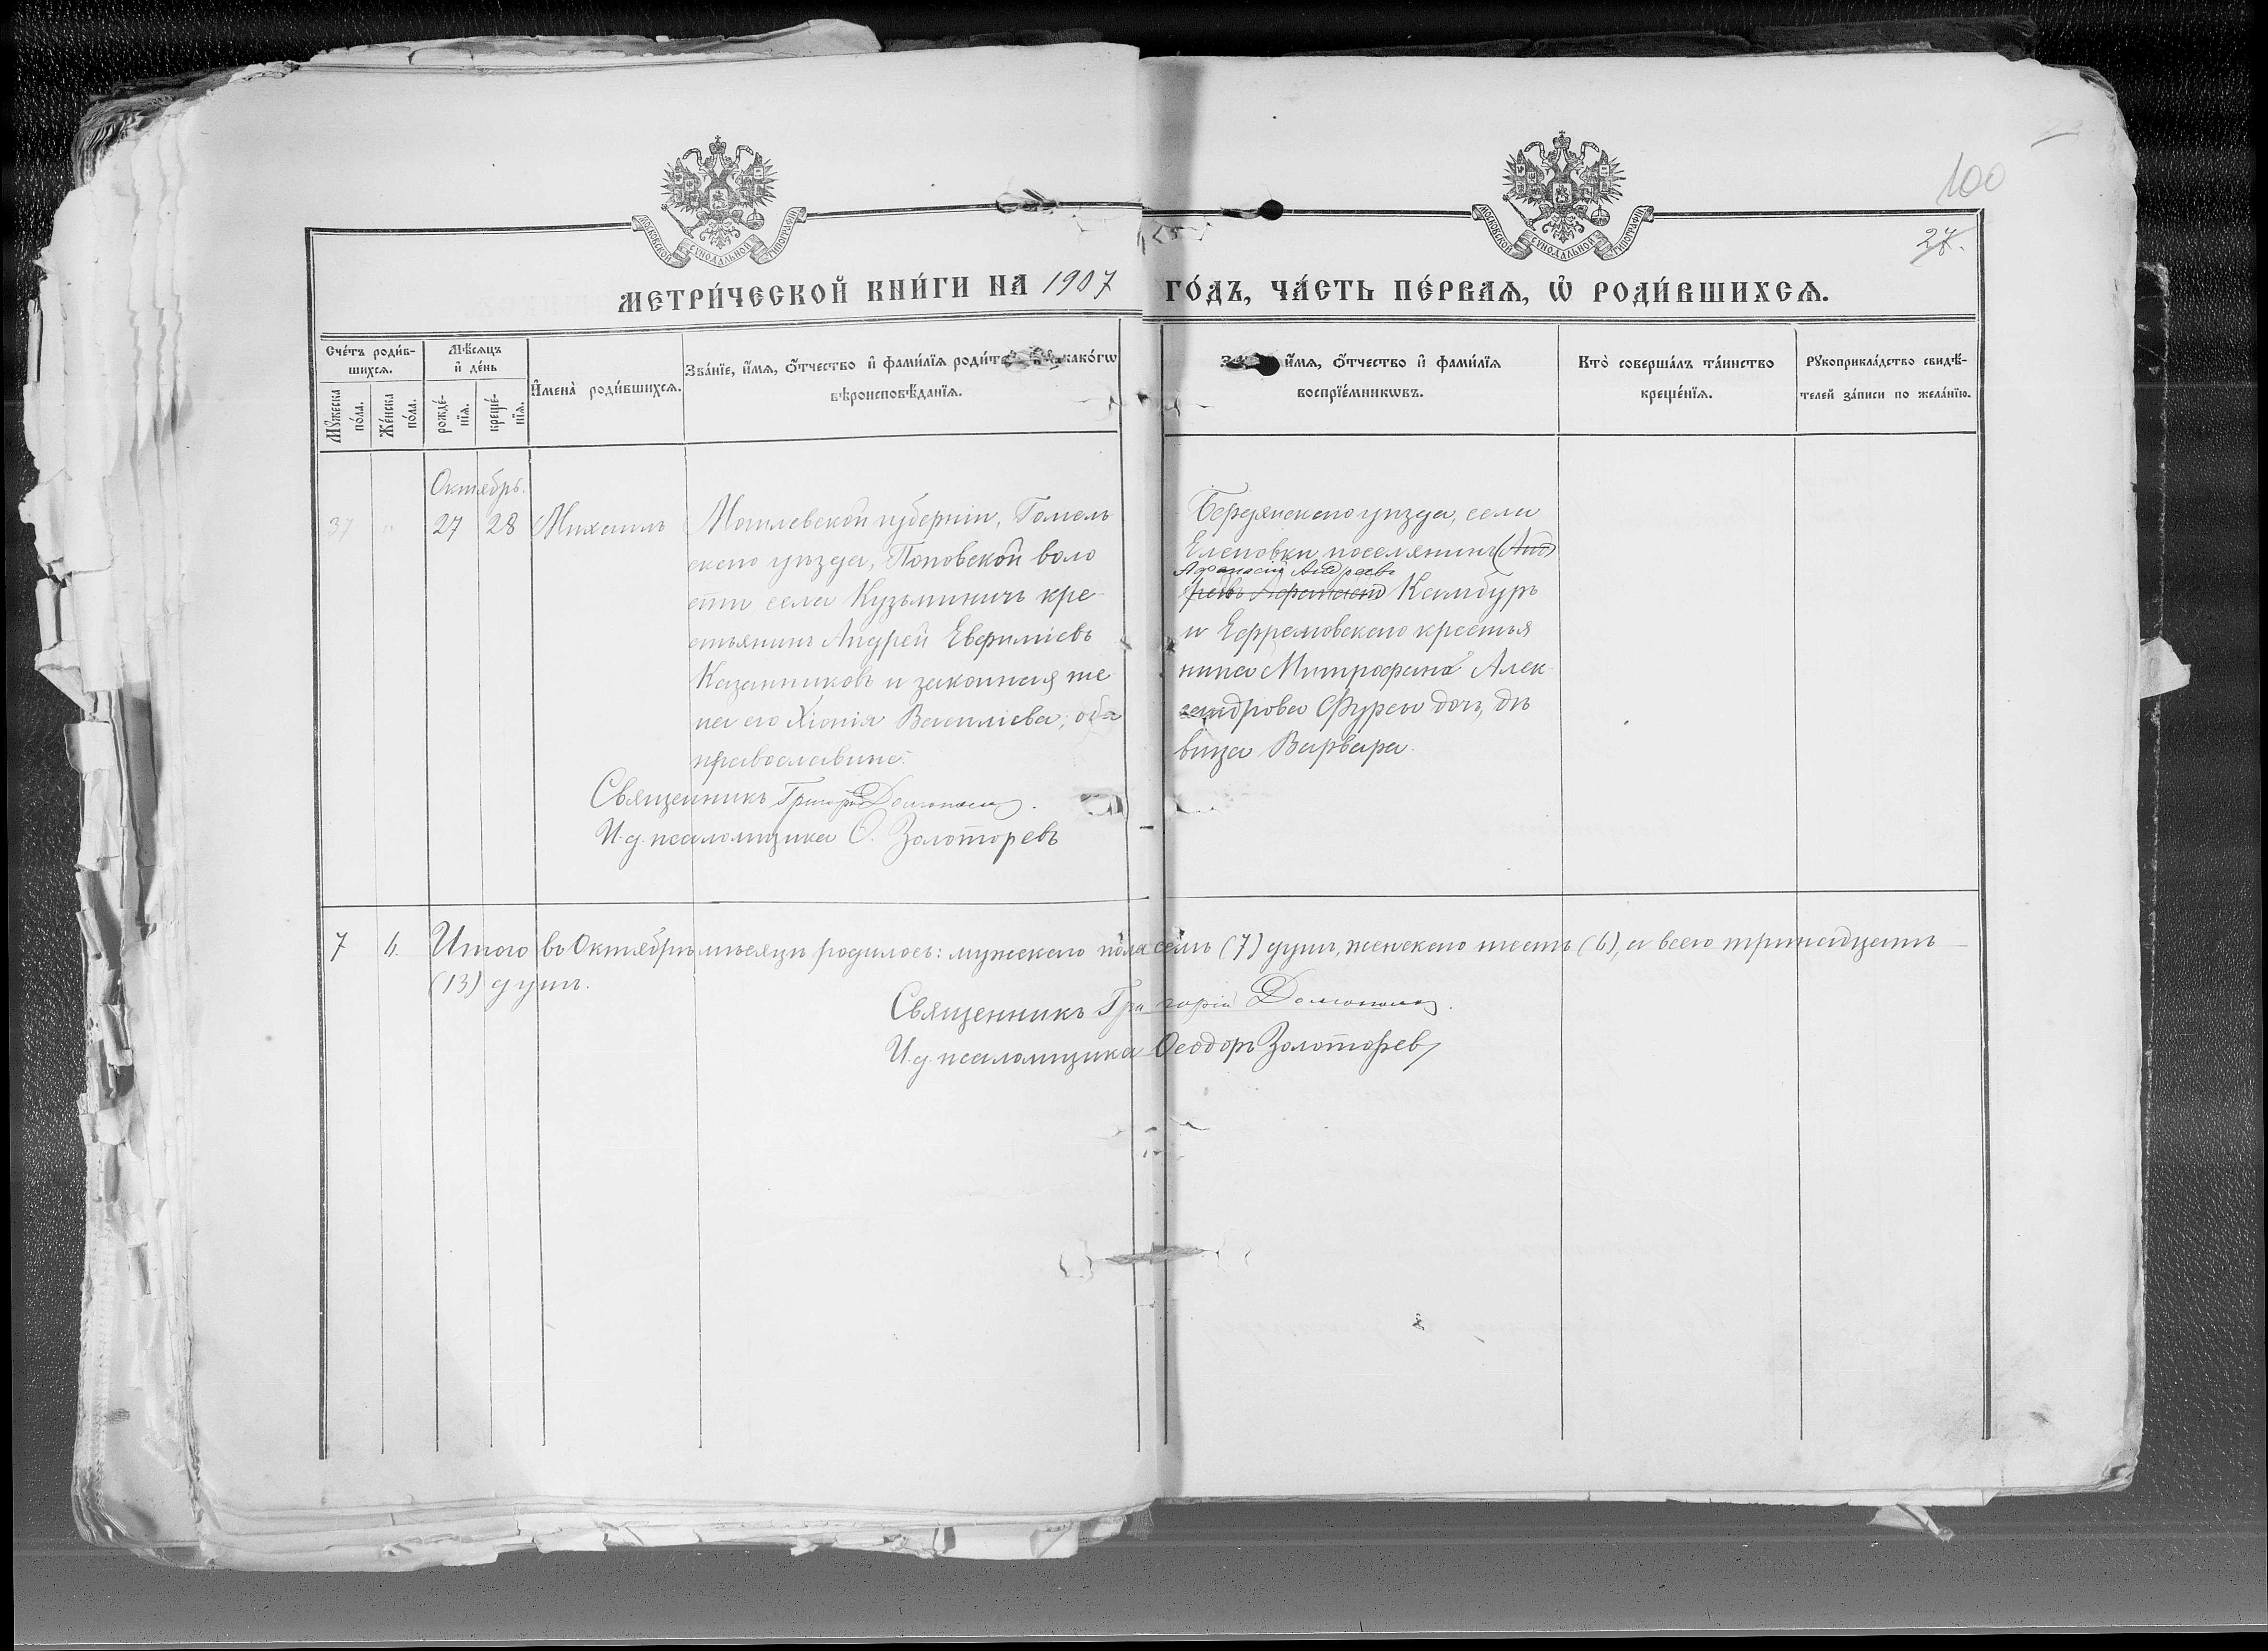 100
27.
МОСКОВСКОЙ СѴНОДАЛЬНОЙ ТИПОГРАФІИ
МОСКОВСКОЙ СѴНОДАЛЬНОЙ ТИПОГРАФІИ
МЕТРИ́ЧЕСКОЙ КНИ́ГИ НА 1907 ГО́ДЪ, ЧА́СТЬ ПЕ́РВАѦ, Ѡ҆ РОДИ́ВШИХСѦ.
Сче́тъ роди́в-
шихсѧ.
Мꙋ́жеска
по́ла.
Же́нска
по́ла.
Мѣ́сѧцъ
и҆ де́нь
рожде́-
нїѧ.
креще́-
нїѧ.
И҆мена̀ роди́вшихсѧ.
Зва́нїе, и҆́мѧ, ѻ҆́тчество и҆ фами́лїѧ роди́те какѡ́гѡ
вѣроисповѣ́данїѧ.
и҆́мѧ, ѻ҆́тчество и҆ фами́лїѧ
воспрїе́мникѡвъ.
Кто̀ соверша́лъ та́инство
креще́нїѧ.
Рꙋкоприкла́дство свидѣ́-
телей за́писи по жела́нїю.
Октябрь.
37 " 27 28 Михаилъ
Могилевской губерніи, Гомель
скаго уѣзда, Поповской воло
сти села Кузьминичъ кре-
стьянинъ Андрей Евфиміевъ
Казанниковъ и законная же
на его Хіонія Василіева; оба
православные.
Священникъ Григорій
И. д. псаломщика Ѳ. Золоторевъ
Бердянскаго уѣзда, села
Еленовки поселянинъ (Анд
Афанасій Андреевъ
реевъ Афанасій) Камбуръ
и Ефремовскаго крестья
нина Митрофана Алек-
сандрова Фурсы дочь, дѣ
вица Варвара.
7 6. Итого въ Октябрѣ мѣсяцѣ родилось: мужескаго пола семь (7) душъ, женскаго шесть (6), а всего тринадцать
(13) душъ.
Священникъ Григорій
И. д. псаломщика Ѳеодоръ Золоторевъ